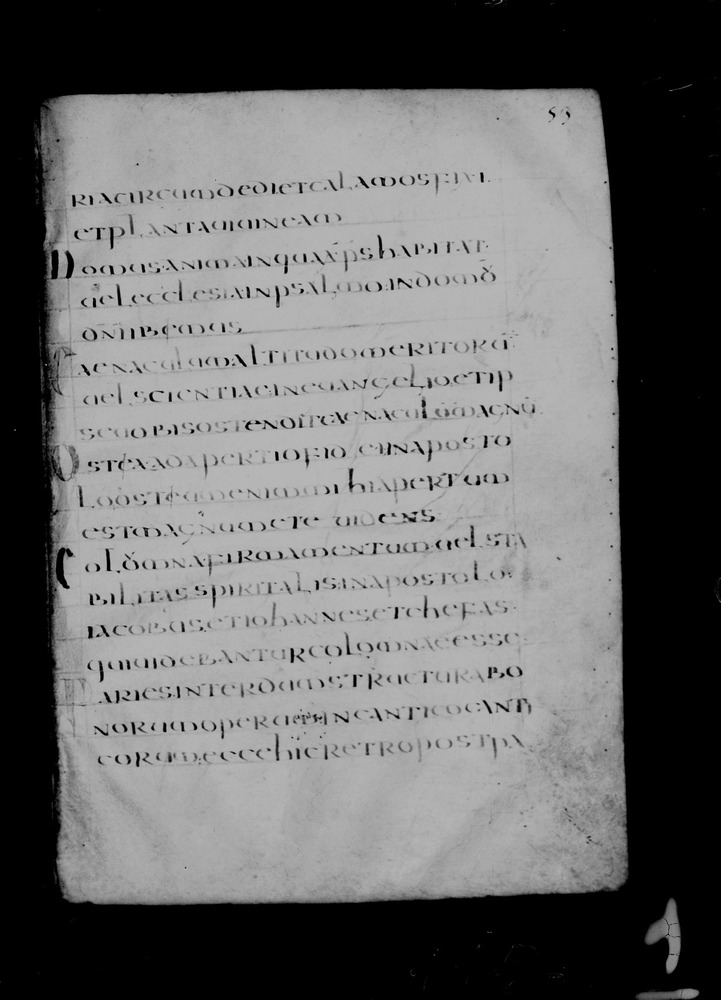 53
RIACIRCUMDEDIETCALAMOSFIXI
ETPLANTAUIUINEAM
DOMUSANIMAINQUAXPSHABITAT
UELECCLESIAINPSALMOINDOMO
DNIIBEMUS
CAENACULUMALTITUDOMERITORU
UELSCIENTIAEINEUANGELIOETIP
SEUOBISOSTENDITCAENACULUMMAGNU
OSTEAADAPERTIOFIDEIINAPOSTO
LOOSTEUMENIMMIHIAPERTUM
ESTMAGNUMETEUIDENS
COLOMNAFIRMAMENTUMUELSTA
BILITASSPIRITALISINAPOSTOLO
IACOBUSETIOHANNESETCHEFAS
QUIUIDEBANTURCOLOMNAEESSE
PARIESINTERDUMSTRUCTURABO
NORUMOPERUMINCANTICOCANTI
CORUMECCEHICRETROPOSTPA